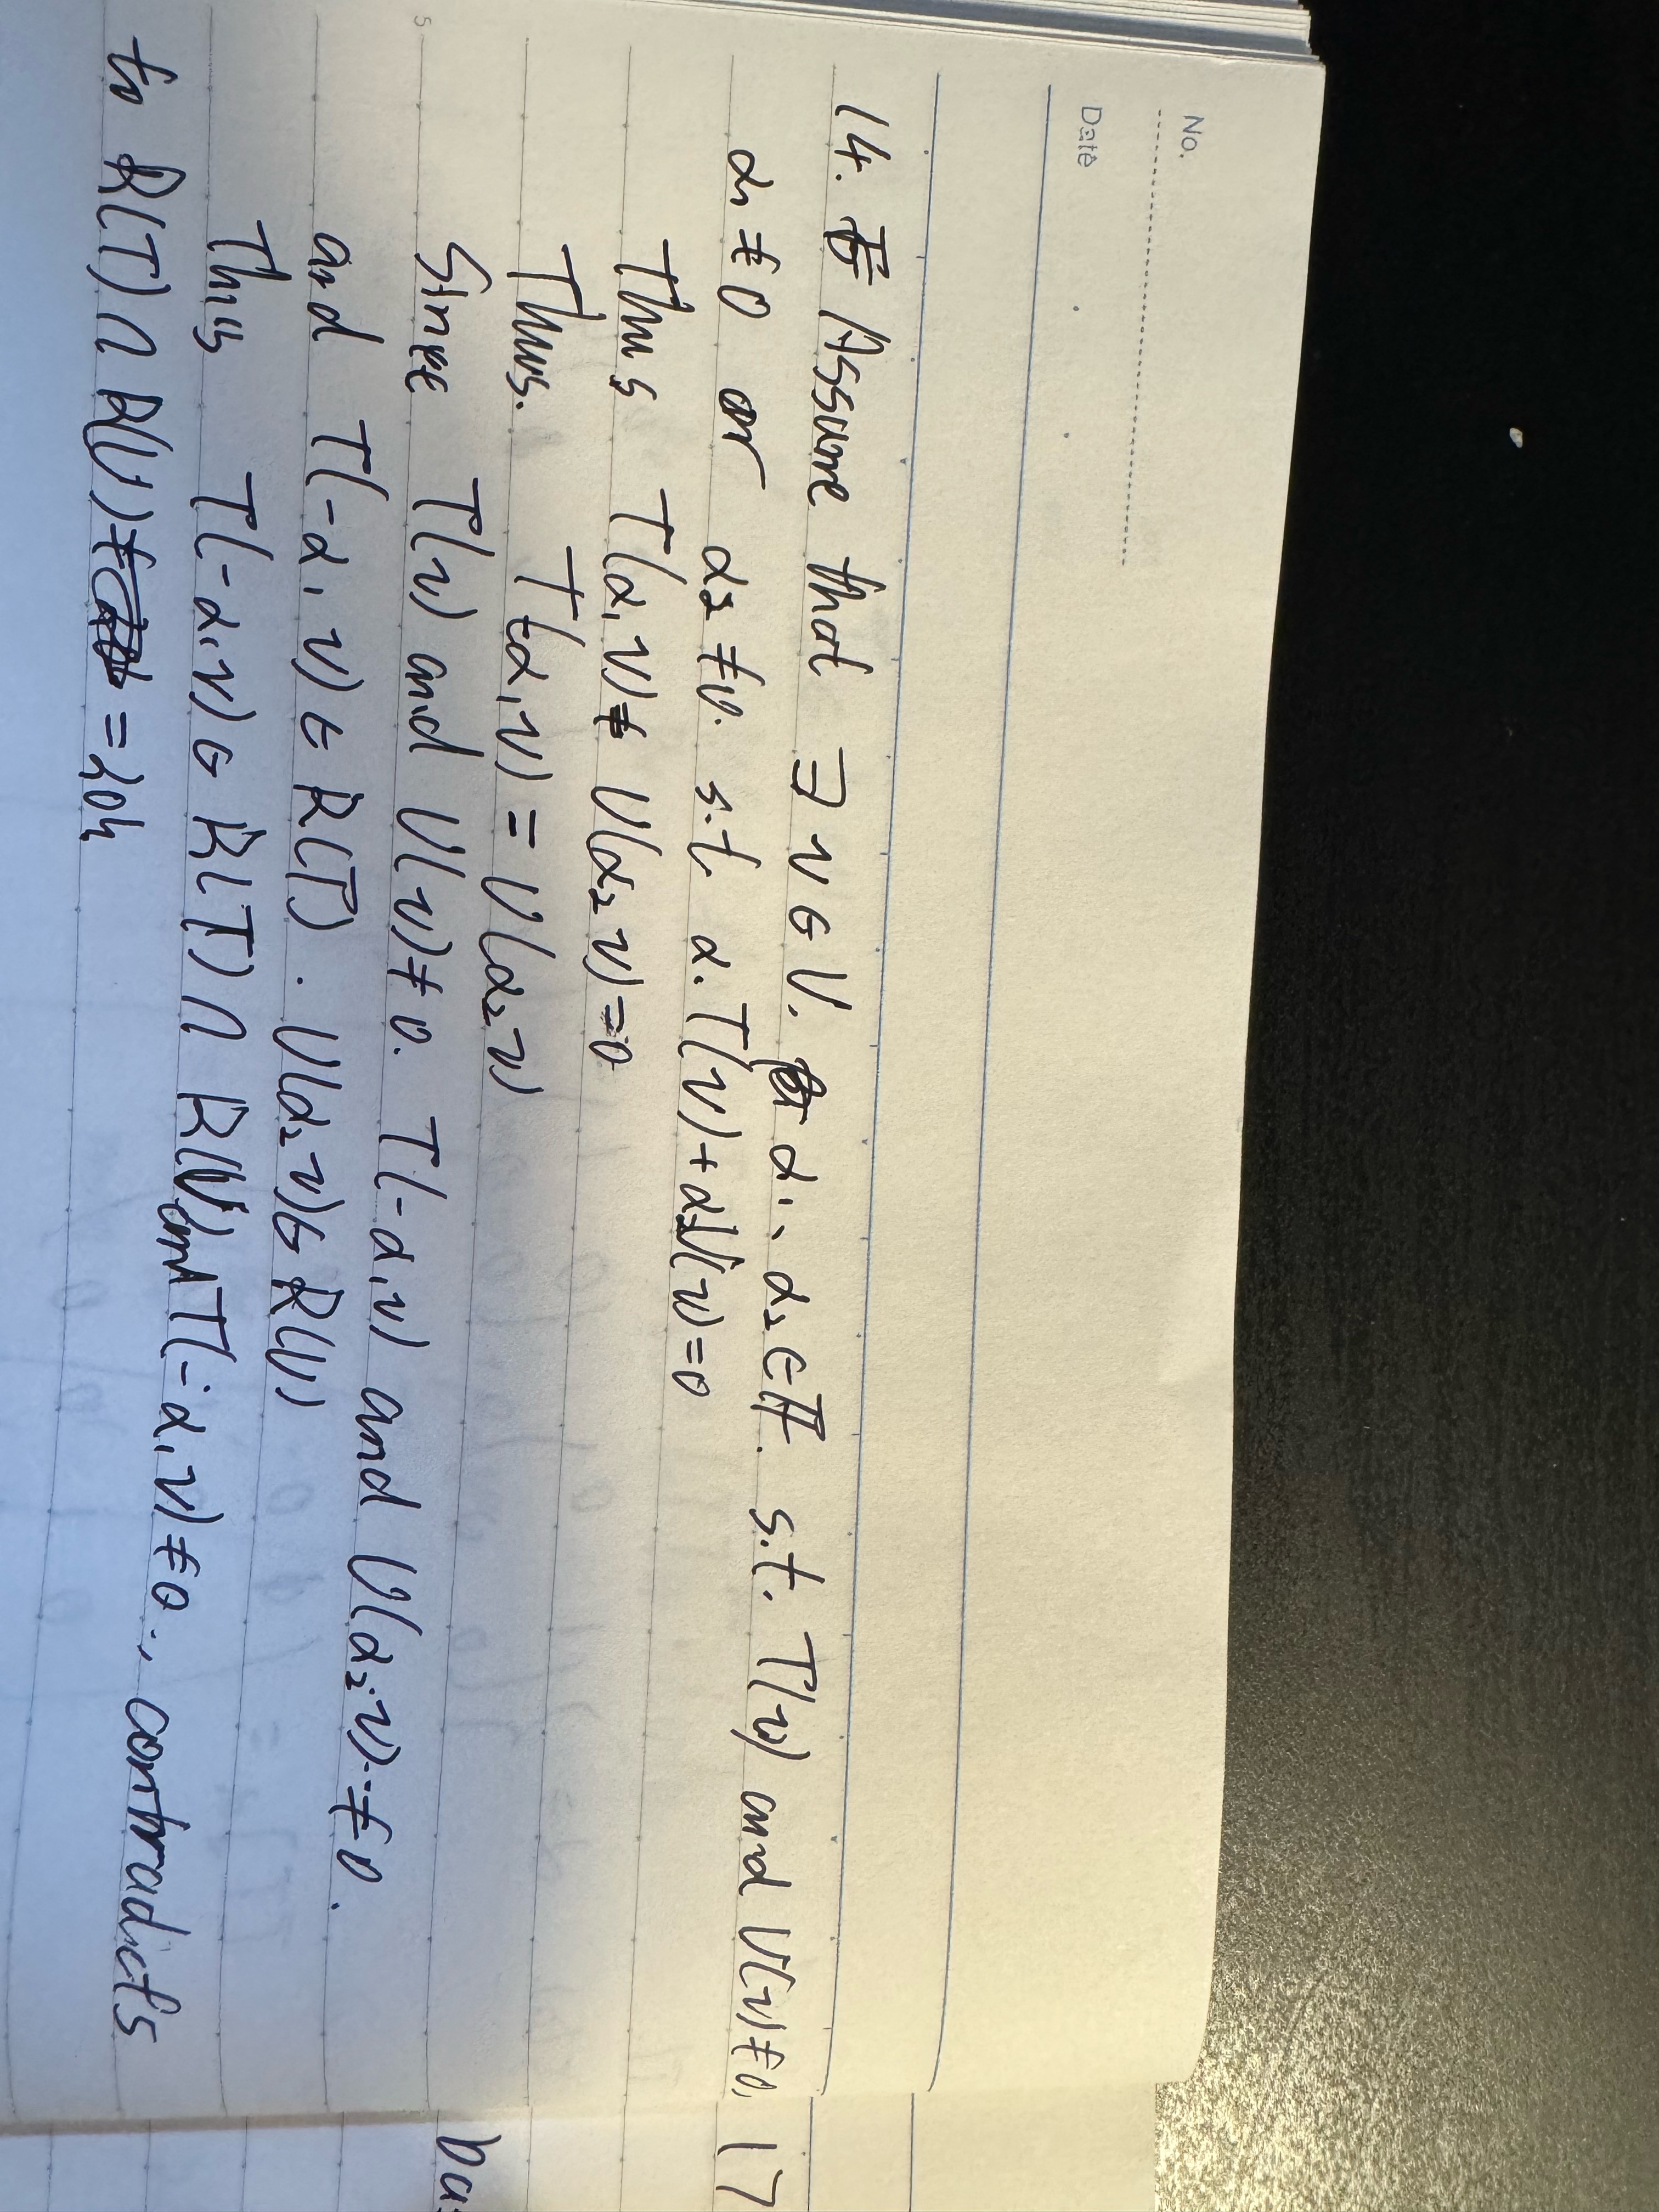 No.
Date
14. Assume that ∃ v ∈ V. α₁, α₂ ∈ F. s.t. T(v) and U(v) ≠ 0,
α₁ ≠ 0 or α₂ ≠ 0. s.t. α₁T(v) + α₂U(v) = 0
Thus T(α₁v) + U(α₂v) = 0
Thus. T(-α₁v) = U(α₂v)
Since T(v) and U(v) ≠ 0. T(-α₁v) and U(α₂v) ≠ 0.
and T(-α₁v) ∈ R(T). U(α₂v) ∈ R(U)
Thus T(-α₁v) ∈ R(T) ∩ R(U) and T(-α₁v) ≠ 0., contradicts
to R(T) ∩ R(U) = {0}
17
ba
5